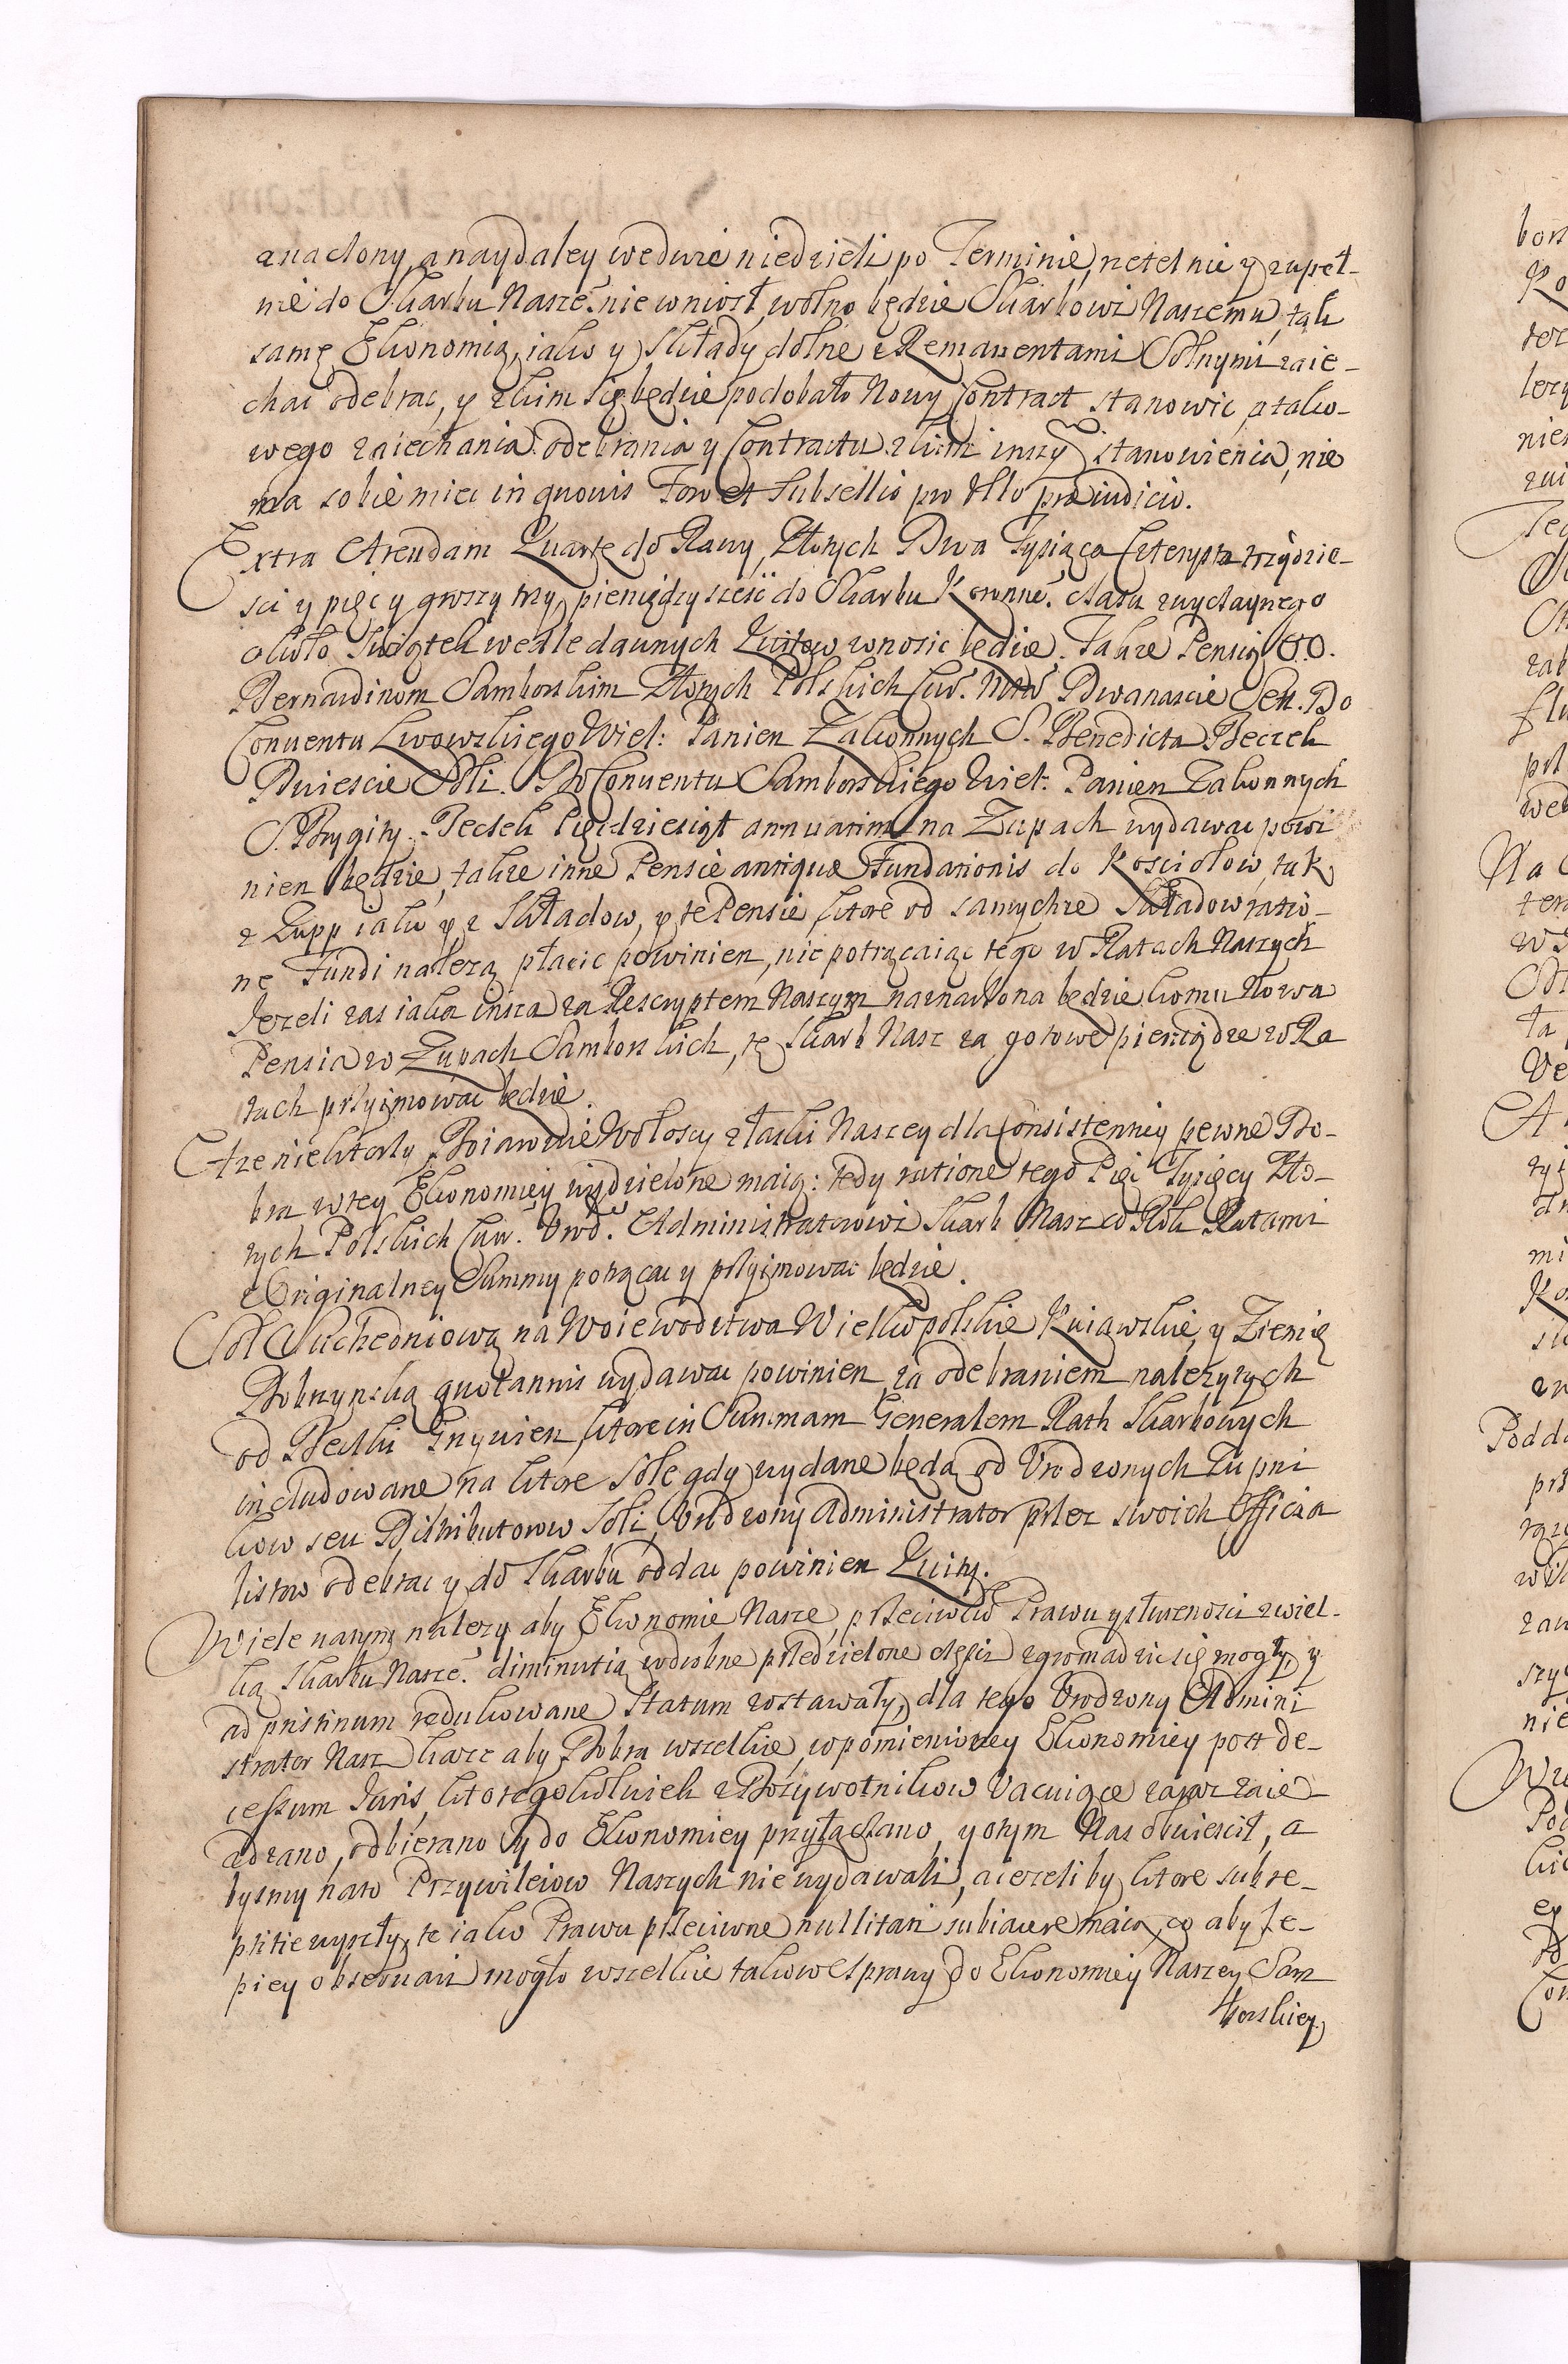 znaczony, a naydaley we dwie niedzieli po Terminie, retelnie y zupeł-
nie do Skarbu Nasze͠. nie wniosł, wolno będzie Skarbowi Naszemu, tak
samę Ekonomią, iako y Składy solne z Remanentami Solnymi zaie-
chać odebrac, y z kim się będzie podobało Nowy Contract stanowic, a tako-
wego zaiechania odebrania y Contractu z kim inszy͠ stanowienia, nie
ma sobie miec in quovis Foro et Subsellio pro Vllo præiudicio.
Extra Arendam Kwartę do Rawy, Złotych Dwa Tysiąca Czterysta trzydzie-
sci y pięc y groszy trzy, pieniędzy szesc do Skarbu Koronne͠. czasu zwyczaynego
około Swiątek wedle dawnych Kwitow wnosic będzie. Takze Pensią O.O.
Bernardinom Samborskim Złotych Polskich Cur. Mtæ Dwanascie Set. Do
Conventu Lwowskiego Wiel: Panien Zakonnych S. Benedicta Beczek
Dwiescie Soli. Do Conventu Samborskiego Wiel: Panien Zakonnych
S. Brygity. Beczek Pięcdziesiąt annuatim na Zupach wydawac powi
nien będzie, takze inne Pensie antiquæ Fundationis do Kosciołow, tak
z Zupp iako y z Składow, y te Pensie ktore od samychze Składow ratio-
ne Fundi nalezą płacic powinien, nie potrącaiąc tego w Ratach Naszych
Jezeli zas iaka insza za Rescryptem Naszym naznaczona będzie komu Nowa
Pensia w Zupach Samborskich, tę Skarb Nasz za gotowe pieniądze w Ra
tach przyimowac będzie.
A ze niektorzy Boiarowie Wołoscy z łaski Naszey dla Consistentiey pewne Do-
bra w tey Ekonomiey wydzielone maią: tedy ratione tego Pięc Tysięcy Zło-
tych Polskich Cur. Urod. Administratorowi Skarb Nasz co Rok Ratami
z Originalney Summy potrącac y przyimowac będzie.
Sol Suchedniową na Woiewodztwa Wielkopolskie Kuiawskie, y Ziemię
Dobrzynską quotannis wydawac powinien, za odebraniem nalezytych
od Beczki Grzywien, ktore in Summam Generalem Rath Skarbowych
includowane na ktore Sole gdy wydane będą od Vrodzonych Zupni
kow seu Distributorow Soli, Vrodzony Administrator przez swoich Officia
listow odebrac y do Skarbu oddac powinien Kwity.
Wiele na tym nalezy aby Ekonomie Nasze, przeciwko Prawu y słusznosci z wiel-
ką Skarbu Nasze͠. diminutią w drobne przedzielone części zgromadzic się mogły, y
ad pristinum redukowane Statum zostawały, dla tego Vrodzony Admini
strator Nasz kaze aby Dobra wszelkie, w pomienioney Ekonomiey post de-
cessum Juris, ktoregokolwiek z Dozywotnikow Vacuiące zaraz zaie-
zdzano, odbierano y do Ekonomiey przyłączano, y o tym Nas obwiescił, a
bysmy na to Przywileiow Naszych nie wydawali, a iezeliby ktore subre-
ptitie wyszły, te iako Prawu przeciwne nullitati subiacere maią, co aby le-
piey obserwari mogło wszelkie takowe sprawy do Ekonomiey Naszey Sam
borskiey